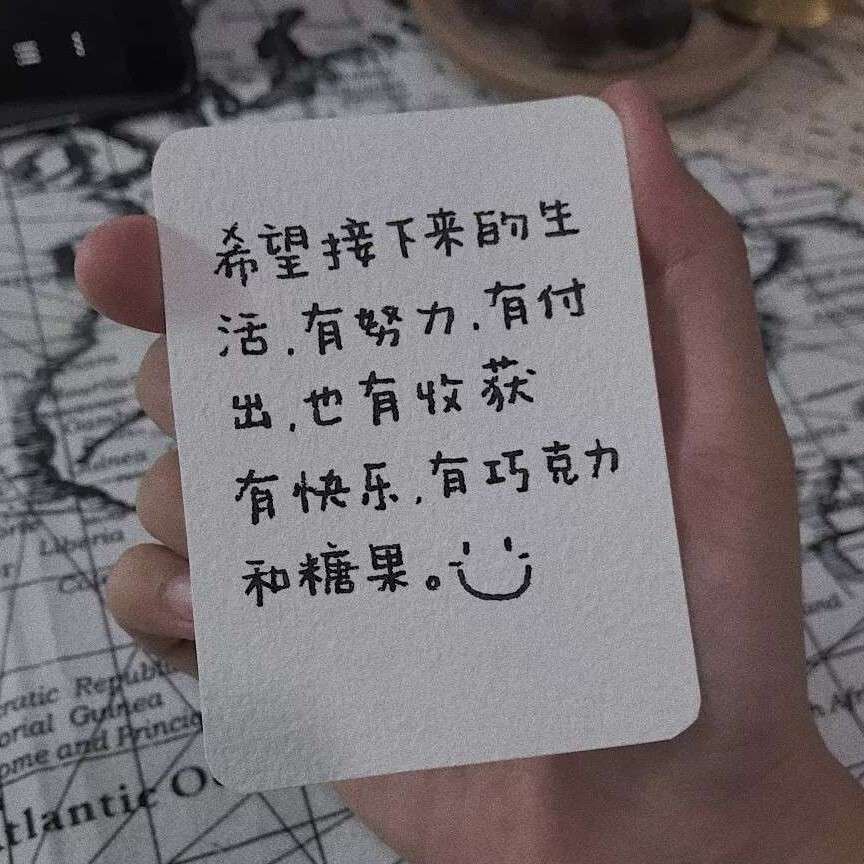 希望接下来的生
活,有努力,有付
出,也有收获
有快乐,有巧克力
和糖果。
Liberia
Guinea
ratic Republic
orial Guinea
ome and Princip
tlantic O